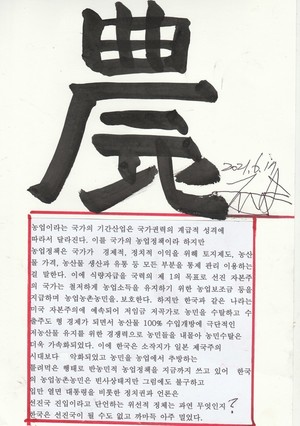 農
2021.6.17
농업이라는 국가의 기간산업은 국가권력의 계급적 성격에
따라서 달라진다. 이를 국가의 농업정책이라 하지만
농업정책은 국가가 경제적, 정치적 이익을 위해 토지제도, 농산
물 가격, 농산물 생산과 유통 등 모든 부분을 통제 관리 이용하는
걸 말한다. 이에 식량자급을 국력의 제 1의 목표로 선진 자본주의
국가는 철저하게 농업소득을 유지하기 위한 농업보조금 등을
지급하며 농업농촌농민을 보호한다. 하지만 한국과 같은 나라는
미국 자본주의에 예속되어 저임금 저곡가로 농민을 수탈하고 수
출주도 형 경제가 되면서 농산물 100% 수입개방에 극단적인
지농산물 유지를 위한 경쟁력으로 농민들을 내몰아 농민수탈은
더욱 가속화되었다. 이에 한국은 소작지가 일본 제국주의
시대보다 악화되었고 농민을 농업에서 추방하는
틀려먹은 행태로 반농민적 농업정책을 지금까지 쓰고 있어 한국
의 농업농촌농민은 빈사상태지만 그럼에도 불구하고
입만 열면 대통령을 비롯한 정치권과 언론은
선진국 진입이라고 단언하는 위선적 정체는 과연 무엇인지?
한국은 선진국이 될 수도 없고 까마득 아주 멀었다.